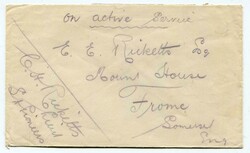 on active Service
E. E. Ricketts Esq
Mount House
Frome
Somerset
Eng
C. H. Ricketts